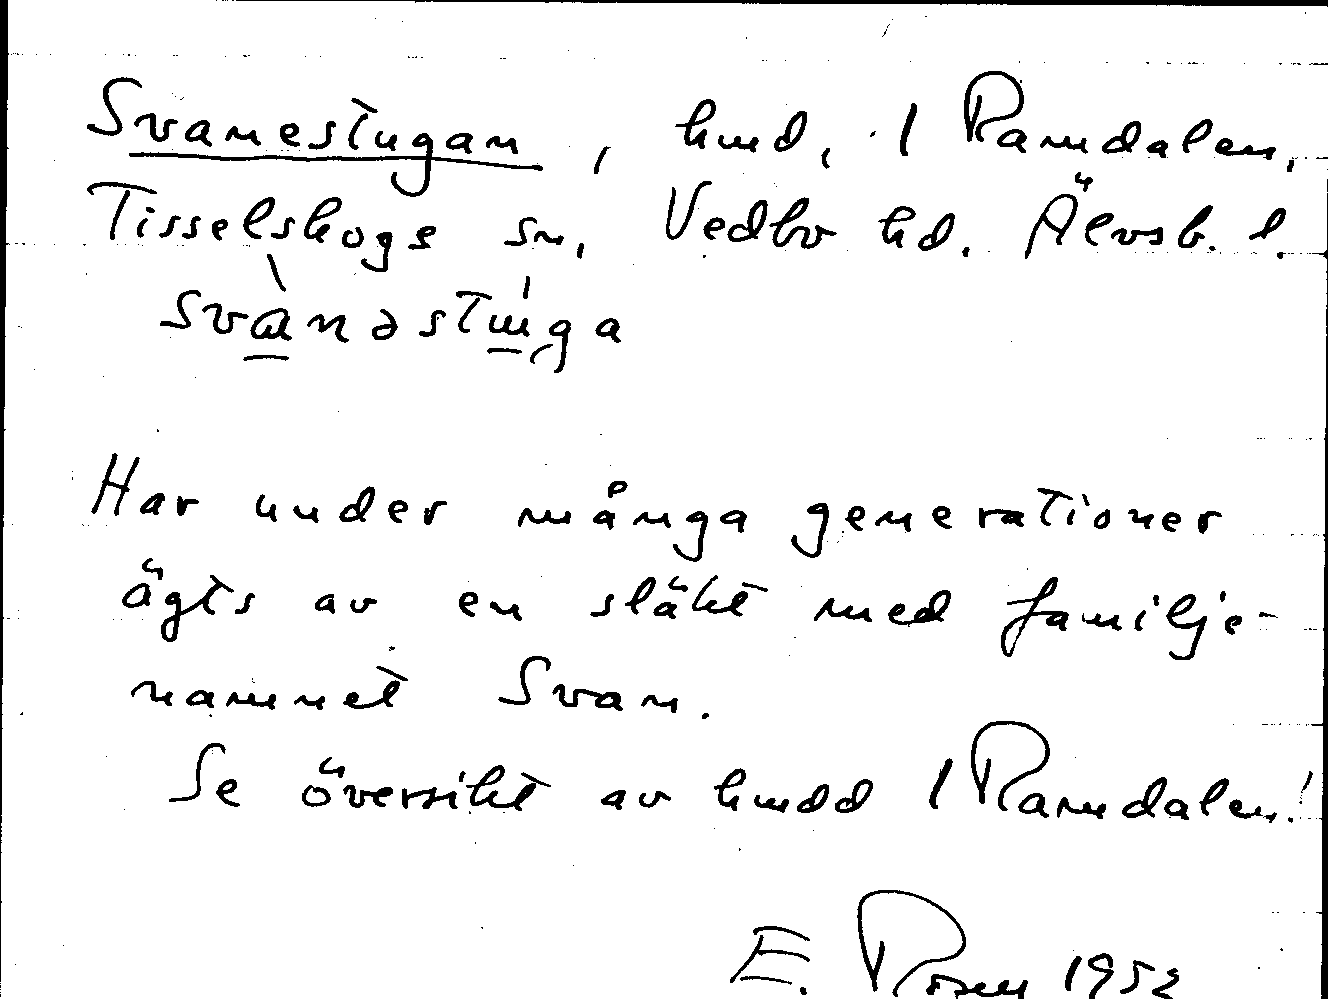 Svanestugan, hmd, 1 Ramdalen,
Tisselskogs sn, Vedbo hd. Älvsb. l.
svànəstúga
Har under många generationer
ägts av en släkt med familje-
namnet Svan.
Se översikt av hmdd 1 Ramdalen!
E. Rosen 1952